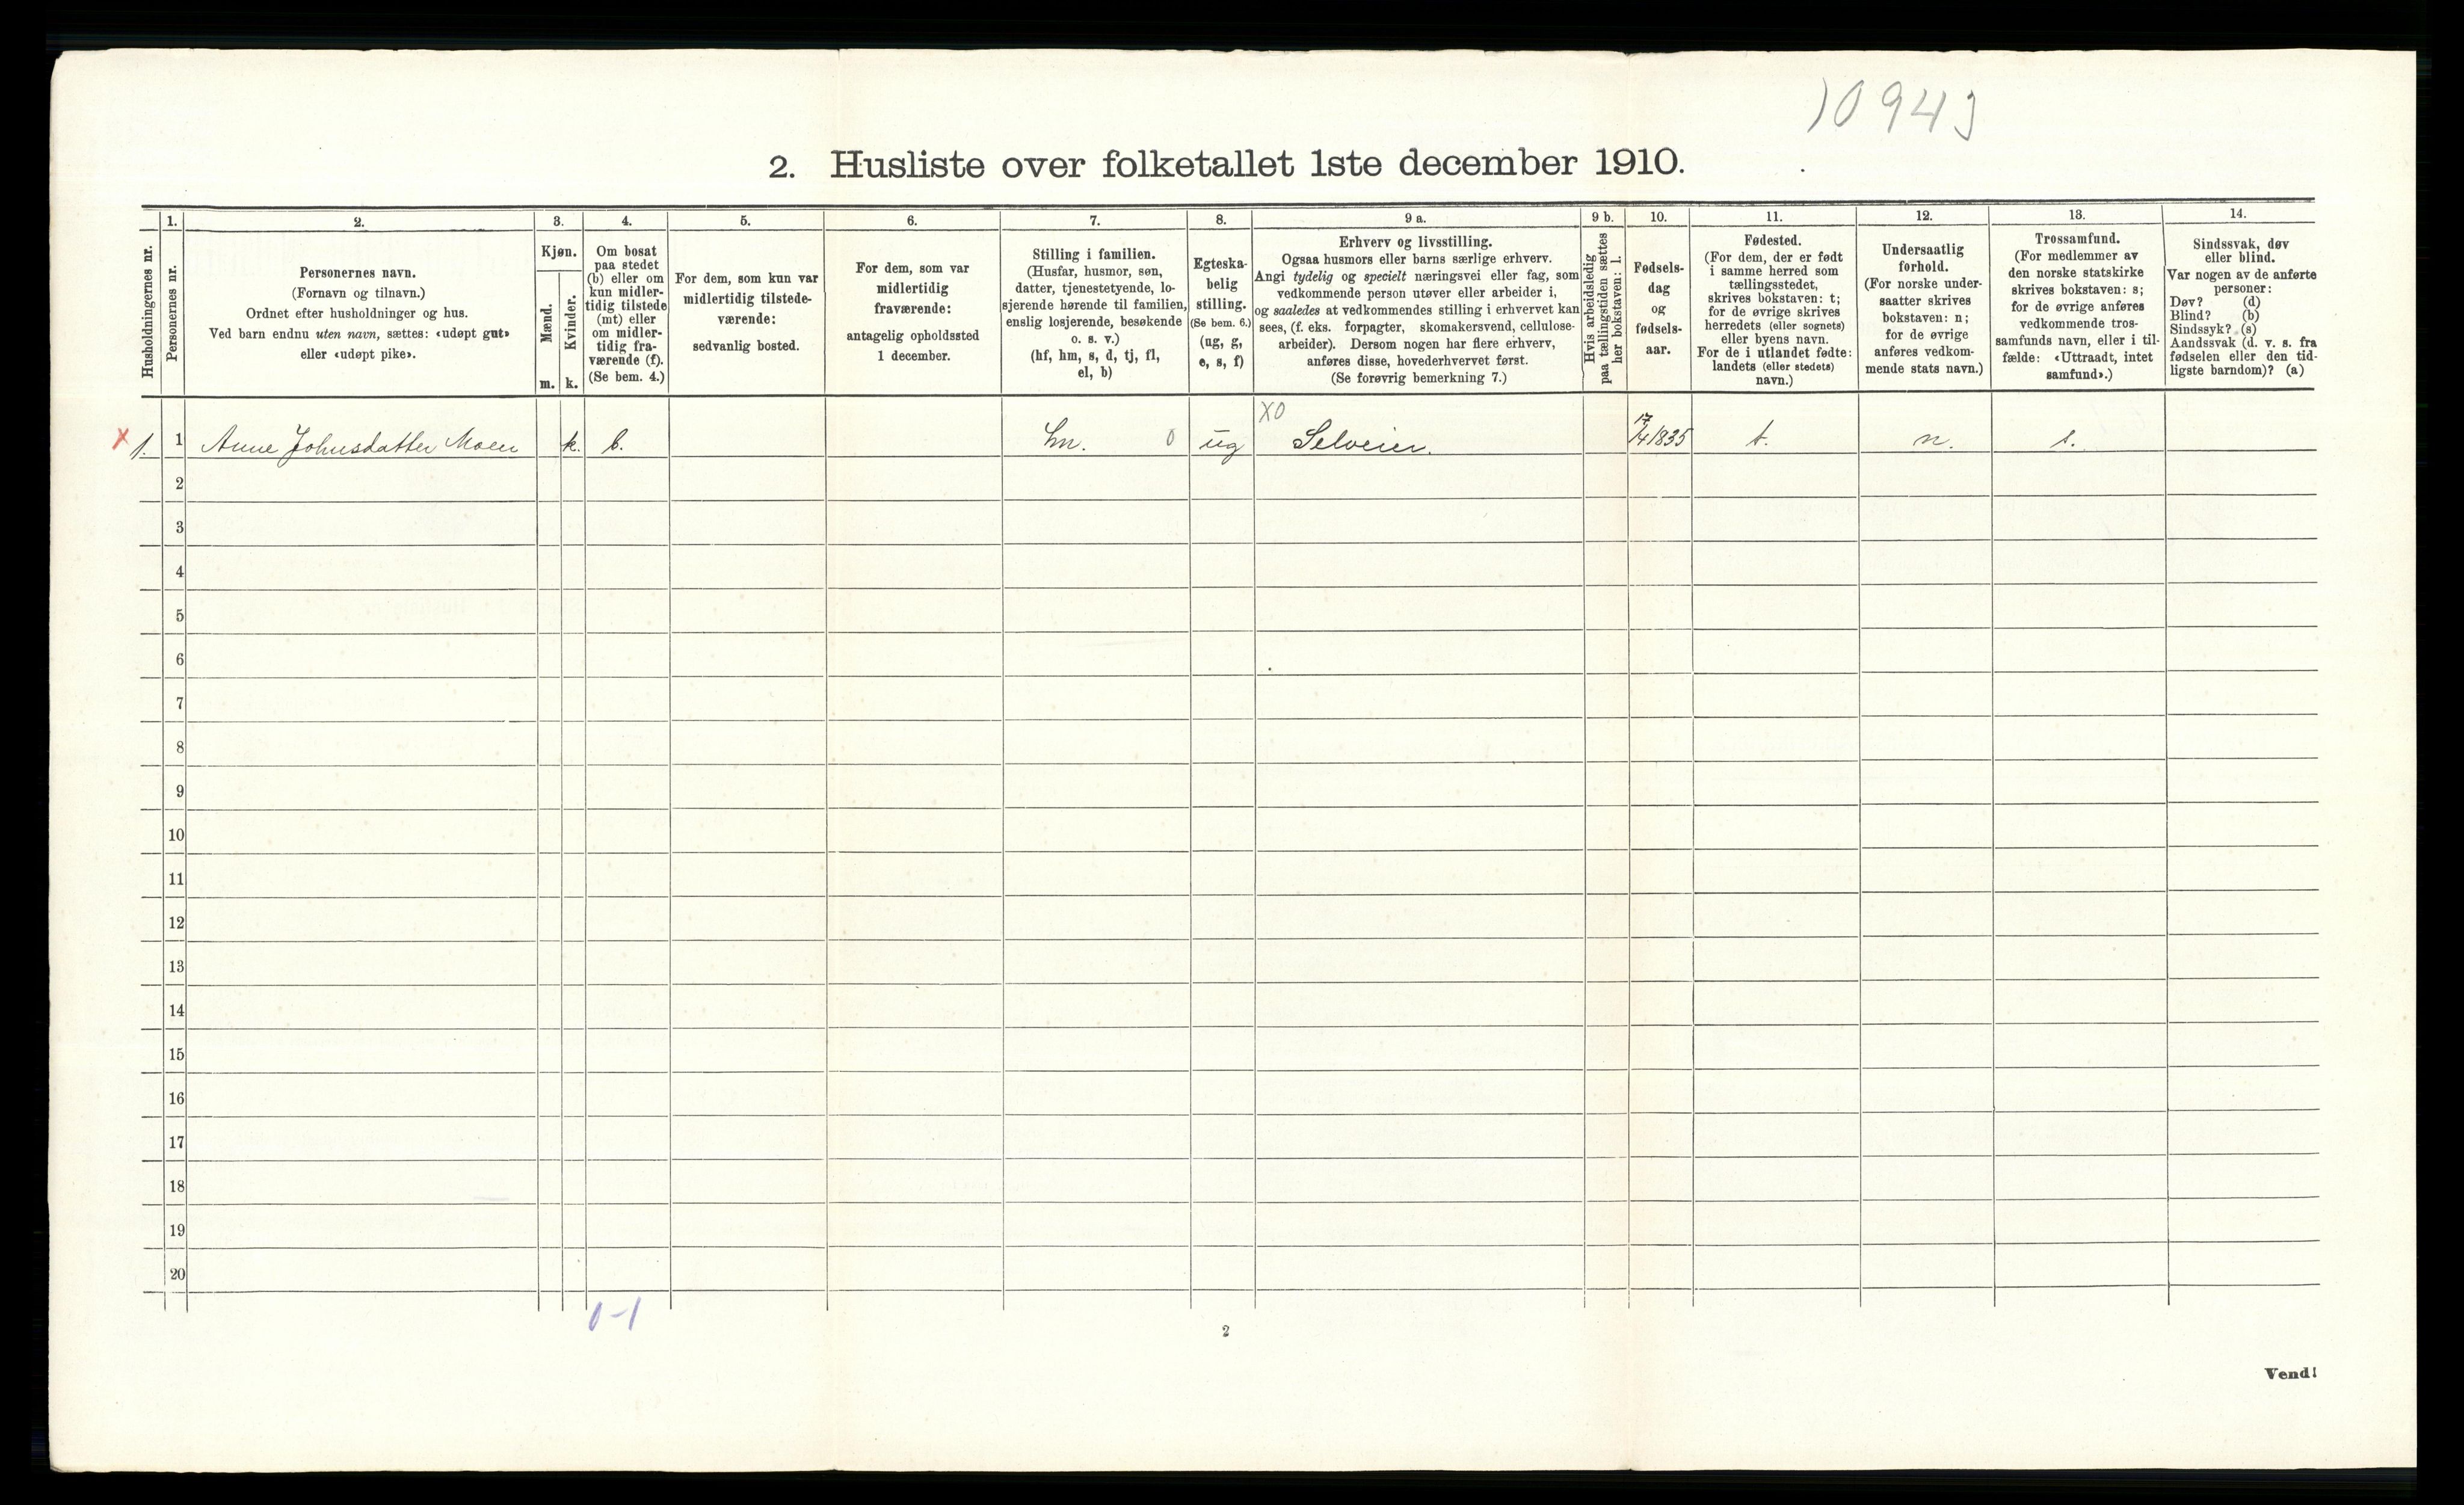 10943
2. Husliste over folketallet 1ste december 1910.
Husholdningernes nr.
1.
Personernes nr.
2.
Personernes navn.
(Fornavn og tilnavn.)
Ordnet efter husholdninger og hus.
Ved barn endnu uten navn, sættes: «udøpt gut»
eller «udøpt pike».
3.
Kjøn.
Mænd.
Kvinder.
m. k.
4.
Om bosat
paa stedet
(b) eller om
kun midler-
tidig tilstede
(mt) eller
om midler-
tidig fra-
værende (f).
(Se bem. 4.)
5.
For dem, som kun var
midlertidig tilstede-
værende:
sedvanlig bosted.
6.
For dem, som var
midlertidig
fraværende:
antagelig opholdssted
1 december.
7.
Stilling i familien.
(Husfar, husmor, søn,
datter, tjenestetyende, lo-
sjerende hørende til familien,
enslig losjerende, besøkende
o. s. v.)
(hf, hm, s, d, tj, fl,
el, b)
8.
Egteska-
belig
stilling.
(Se bem. 6.)
(ug, g,
e, s, f)
9 a.
Erhverv og livsstilling.
Ogsaa husmors eller barns særlige erhverv.
Angi tydelig og specielt næringsvei eller fag, som
vedkommende person utøver eller arbeider i,
og saaledes at vedkommendes stilling i erhvervet kan
sees, (f. eks. forpagter, skomakersvend, cellulose-
arbeider). Dersom nogen har flere erhverv,
anføres disse, hovederhvervet først.
(Se forøvrig bemerkning 7.)
9 b.
Hvis arbeidsledig
paa tællingstiden sættes
her bokstaven: l.
10.
Fødsels-
dag
og
fødsels-
aar.
11.
Fødested.
(For dem, der er født
i samme herred som
tællingsstedet,
skrives bokstaven: t;
for de øvrige skrives
herredets (eller sognets)
eller byens navn.
For de i utlandet fødte:
landets (eller stedets)
navn.)
12.
Undersaatlig
forhold.
(For norske under-
saatter skrives
bokstaven: n;
for de øvrige
anføres vedkom-
mende stats navn.)
13.
Trossamfund.
(For medlemmer av
den norske statskirke
skrives bokstaven: s;
for de øvrige anføres
vedkommende tros-
samfunds navn, eller i til-
fælde: «Uttraadt, intet
samfund».)
14.
Sindssvak, døv
eller blind.
Var nogen av de anførte
personer:
Døv? (d)
Blind? (b)
Sindssyk? (s)
Aandssvak (d. v. s. fra
fødselen eller den tid-
ligste barndom)? (a)
X 1. 1 Anne Johnsdatter Moen k. b. hm. 0 ug X0 Selveier. 17/4 1835 t. n. s.
2
3
4
5
6
7
8
9
10
11
12
13
14
15
16
17
18
19
20
0-1
2
Vend!